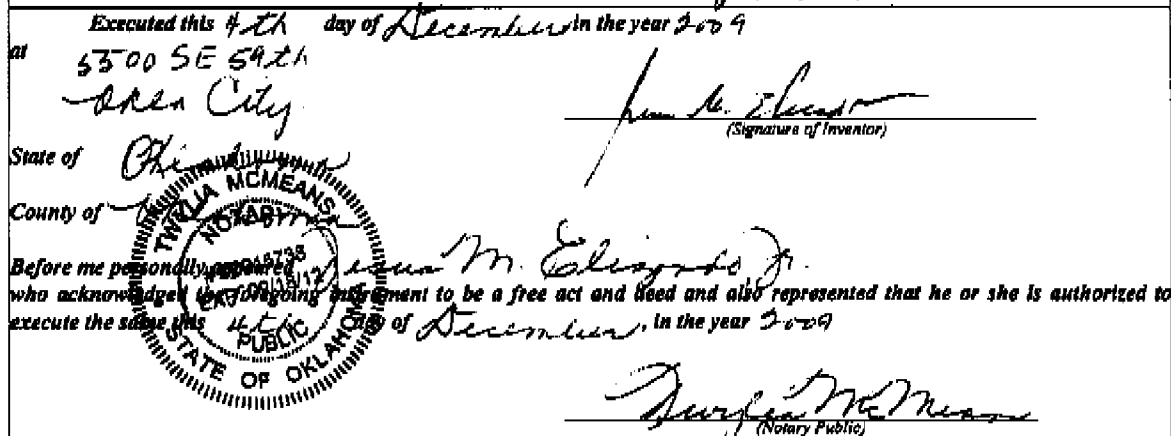 Executed this 4th day of December in the year 2009
at 5500 SE 59th
Okla City
(Signature of Inventor)
State of
County of
Before me personally appeared Jesus M. Elizondo Jr.
who acknowledged the foregoing instrument to be a free act and deed and also represented that he or she is authorized to
execute the same this 4th day of December, in the year 2009
TWYLIA MCMEANS
NOTARY
EXP. 09/18/12
PUBLIC
STATE OF OKLAHOMA
Twylia McMeans
(Notary Public)